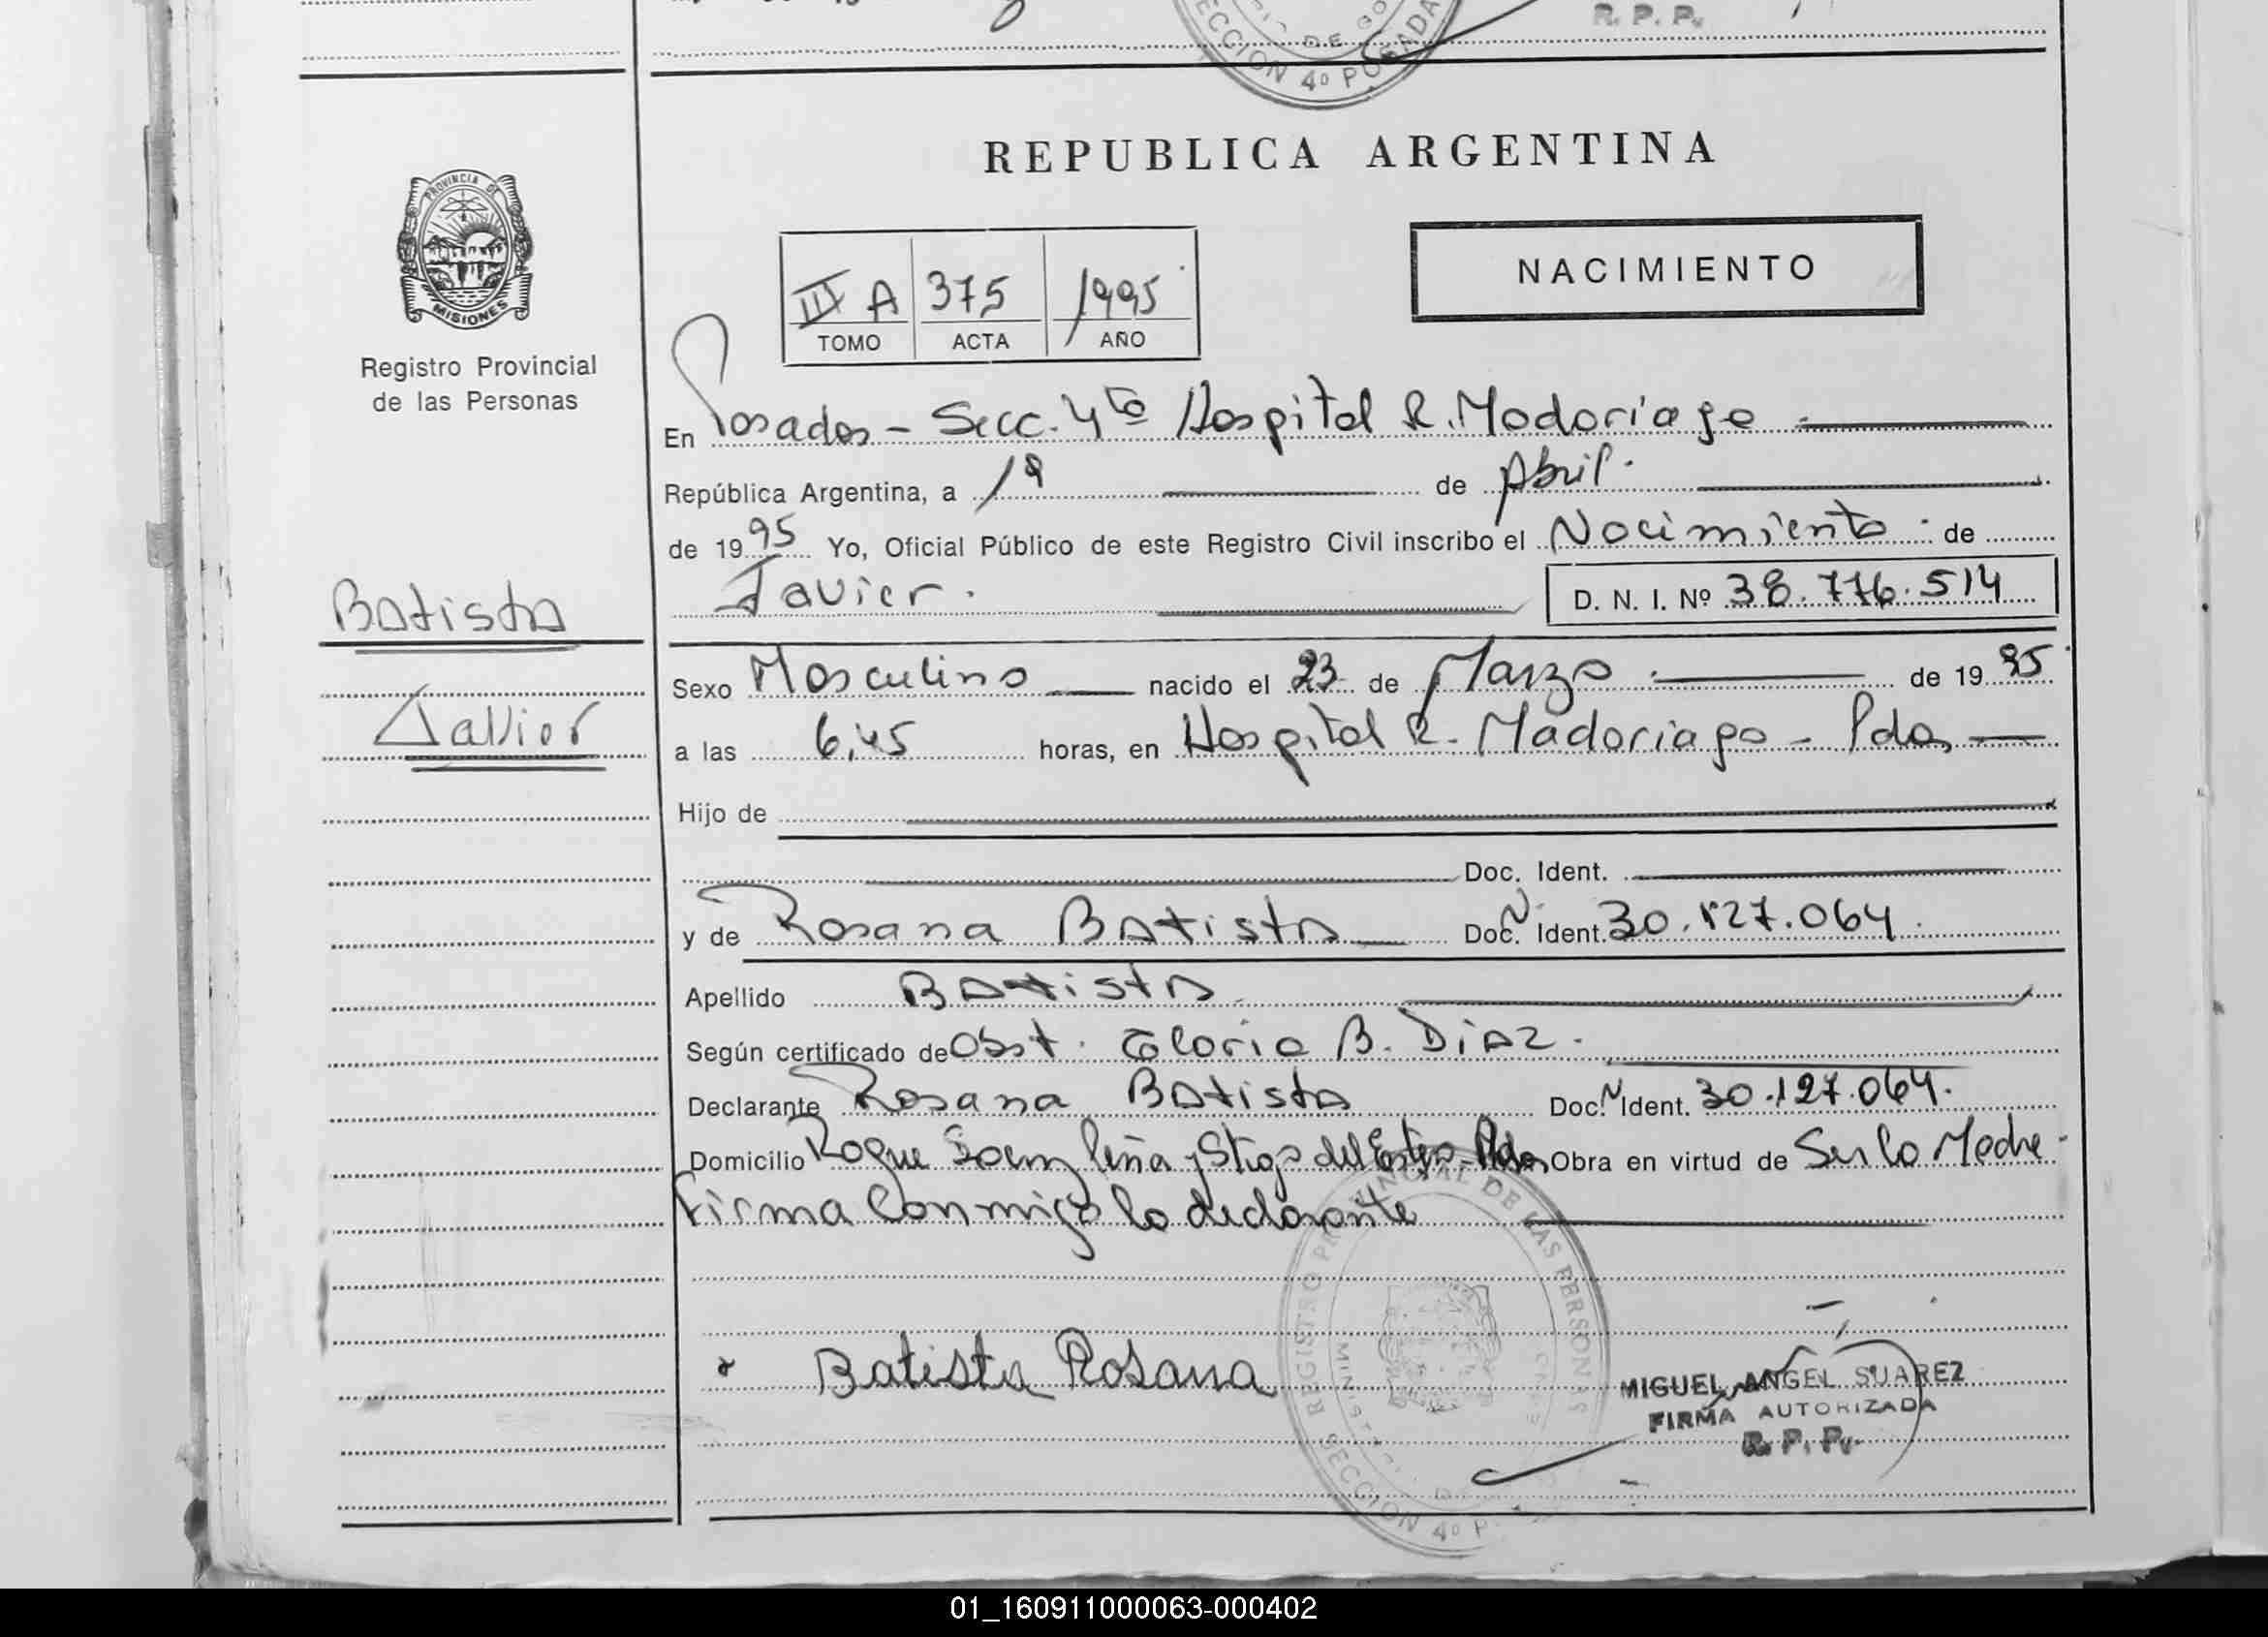 R. P. P.
SECCION 4º POSADAS
REPUBLICA ARGENTINA
PROVINCIA DE MISIONES
Registro Provincial
de las Personas
III A 375 1995
TOMO ACTA AÑO
NACIMIENTO
En Posadas - Secc. 4ta Hospital R. Madariaga
República Argentina, a 19 de Abril.
de 1995 Yo, Oficial Público de este Registro Civil inscribo el Nacimiento de
Javier. D. N. I. Nº 38.776.514
Batista
Javier
Sexo Masculino nacido el 23 de Marzo de 1995
a las 6,45 horas, en Hospital R. Madariaga - Pdas
Hijo de
Doc. Ident.
y de Rosana Batista Doc. N. Ident. 30.127.064.
Apellido Batista
Según certificado de Obst. Gloria B. Diaz.
Declarante Rosana Batista Doc. N Ident. 30.127.064.
Domicilio Roque Saenz Peña y Stgo del Estero - Pdas Obra en virtud de Ser la Madre -
Firma conmigo la declarante
REGISTRO PROVINCIAL DE LAS PERSONAS
Batista Rosana
MIGUEL ANGEL SUAREZ
FIRMA AUTORIZADA
R. P. P.
SECCION 4º
01_160911000063-000402